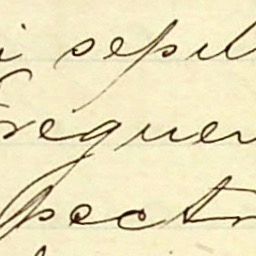 i sepul
Frequen
pectr